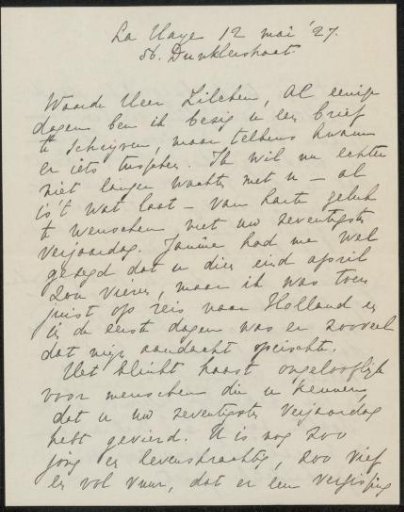 La Haye 12 mai '27.
56. Dunklerstraat
Waarde Heer Zilcken, Al eenige
dagen ben ik bezig u een brief
te schrijven, maar telkens kwam
er iets tusschen. Ik wil nu echter
niet langer wachten met u – al
is 't wat laat – van harte geluk
te wenschen met uw zeventigste
verjaardag. Janine had me wel
gezegd dat u dien eind april
zou vieren, maar ik was toen
juist op reis naar Holland en
in de eerste dagen was er zooveel
dat mijn aandacht opeischte.
Het klinkt haast ongelooflijk
voor menschen die u kennen,
dat u uw zeventigste verjaardag
hebt gevierd. U is nog zoo
jong en levenskrachtig, zoo vief
en vol vuur, dat er een vergissing